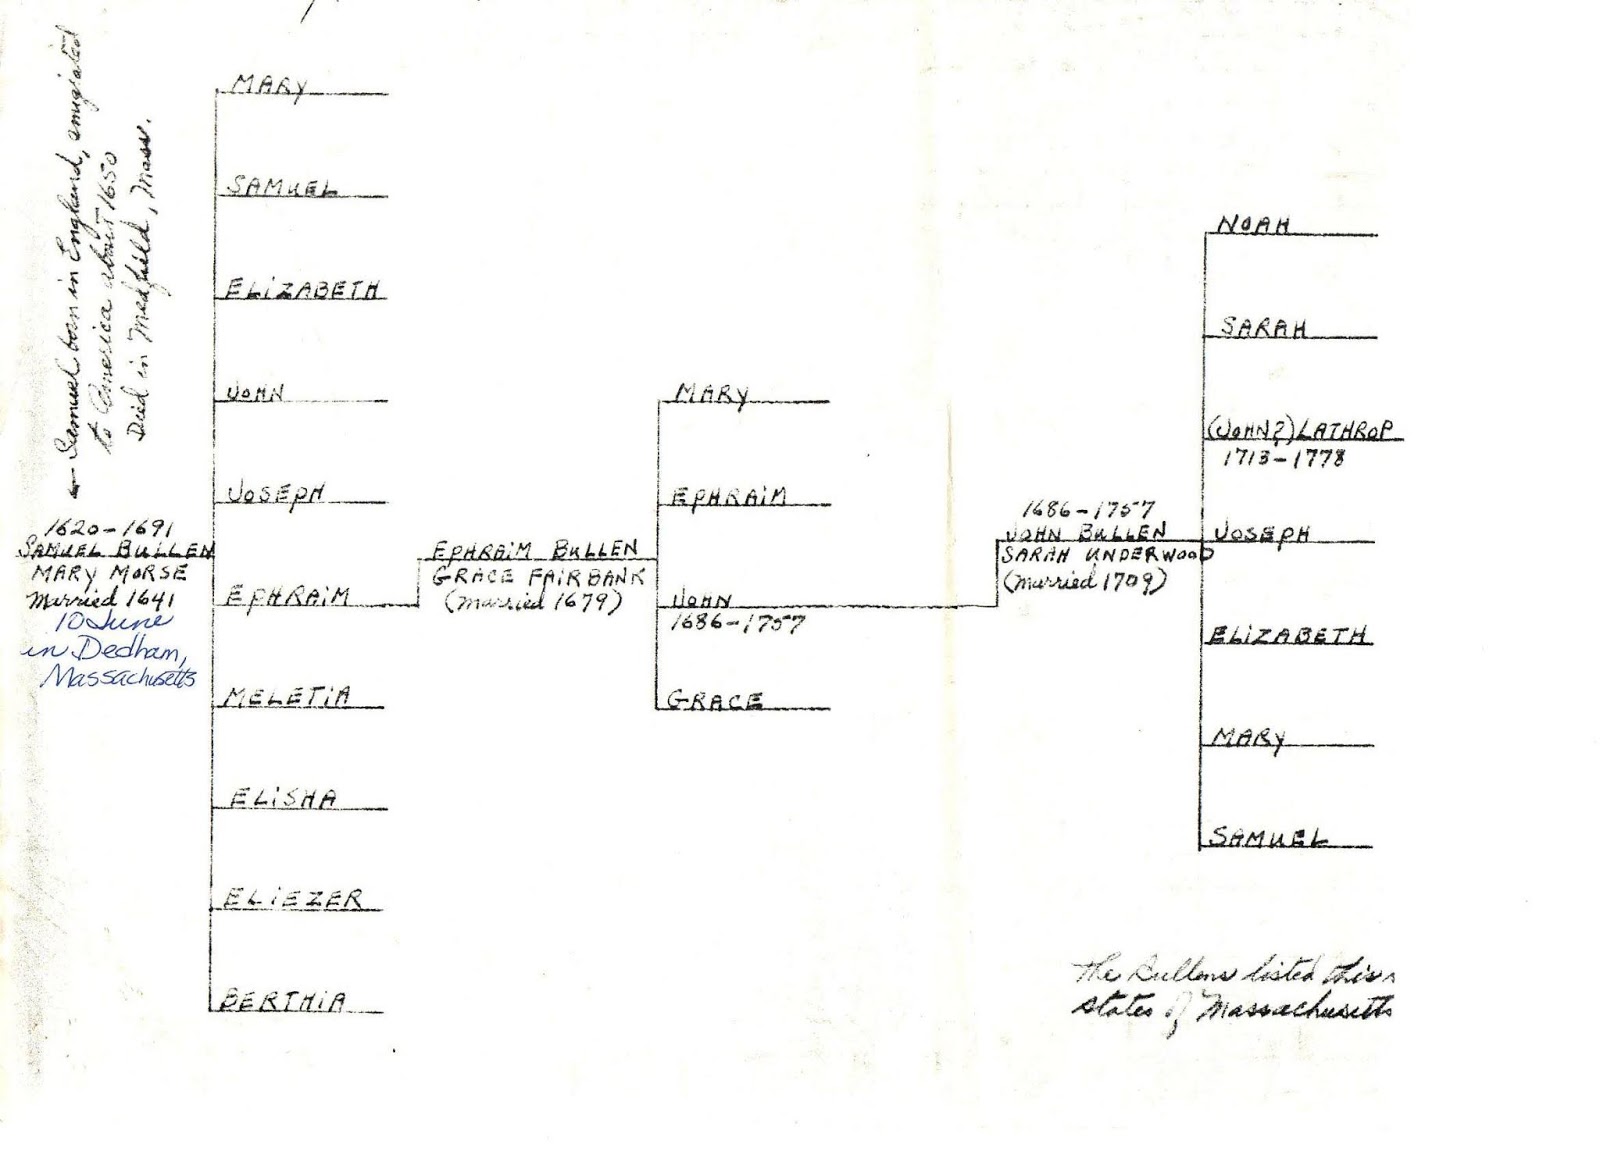 ← Samuel born in England, emigrated
to America about 1650
Died in Medfield, Mass.
1620-1691
SAMUEL BULLEN
MARY MORSE
Married 1641
10 June
in Dedham,
Massachusetts
MARY
SAMUEL
ELIZABETH
JOHN
JOSEPH
EPHRAIM
MELETIA
ELISHA
ELIEZER
BERTHIA
EPHRAIM BULLEN
GRACE FAIRBANK
(Married 1679)
MARY
EPHRAIM
JOHN
1686-1757
GRACE
1686-1757
JOHN BULLEN
SARAH UNDERWOOD
(Married 1709)
NOAH
SARAH
(JOHN?) LATHROP
1713-1778
JOSEPH
ELIZABETH
MARY
SAMUEL
The Bullens listed this
states of Massachusetts